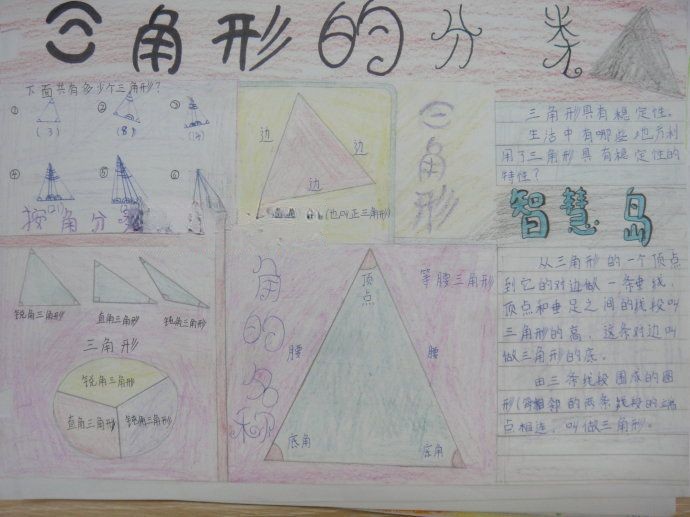 三角形的分类
下面共有多少个三角形?
① ② ③
(3) (8)
④ ⑤ ⑥
(21)
按角分
边
边
边
(也叫正三角形)
三角形
三角形具有稳定性。
生活中有哪些地方利
用了三角形具有稳定性的
特性?
智慧岛
从三角形的一个顶点
到它的对边做一条垂线,
顶点和垂足之间的线段叫
三角形的高,这条对边叫
做三角形的底。
由三条线段围成的图
形(每相邻的两条线段的端
点相连,叫做三角形。
锐角三角形 直角三角形 钝角三角形
三角形
锐角三角形
直角三角形
钝角三角形
角的名称
等腰三角形
顶点
腰 腰
底角 底角